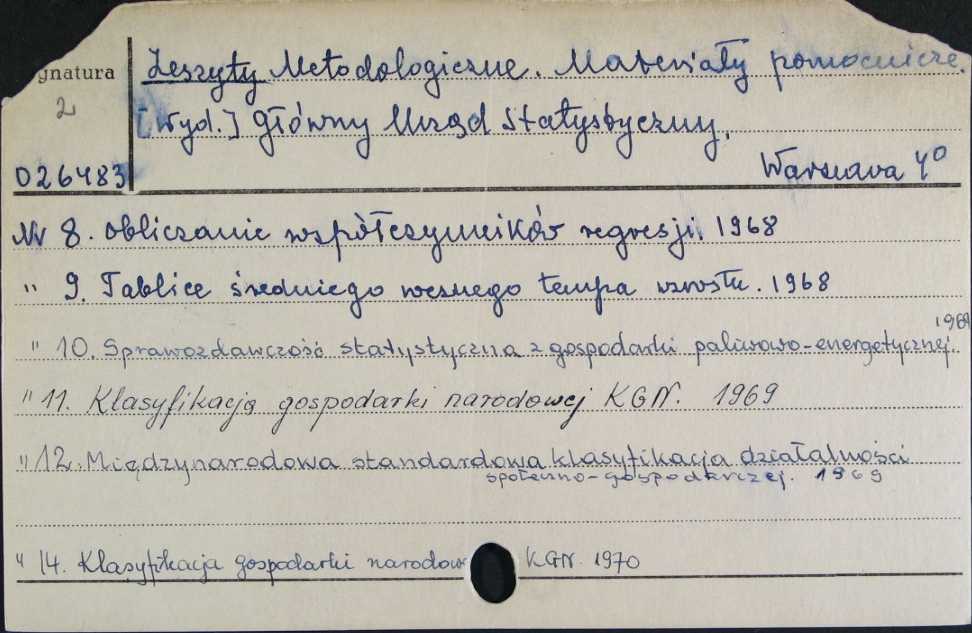 gnatura
2
026483
Zeszyty Metodologiczne. Materiały pomocnicze.
[Wyd.] Główny Urząd Statystyczny.
Warszawa 4°
Nr 8. Obliczanie współczynników regresji. 1968
" 9. Tablice średniego rocznego tempa wzrostu. 1968
" 10. Sprawozdawczość statystyczna z gospodarki paliwowo-energetycznej. 1969
" 11. Klasyfikacja gospodarki narodowej KGN. 1969
" 12. Międzynarodowa standardowa klasyfikacja działalności
społeczno-gospodarczej. 1969
" 14. Klasyfikacja gospodarki narodow KGN. 1970